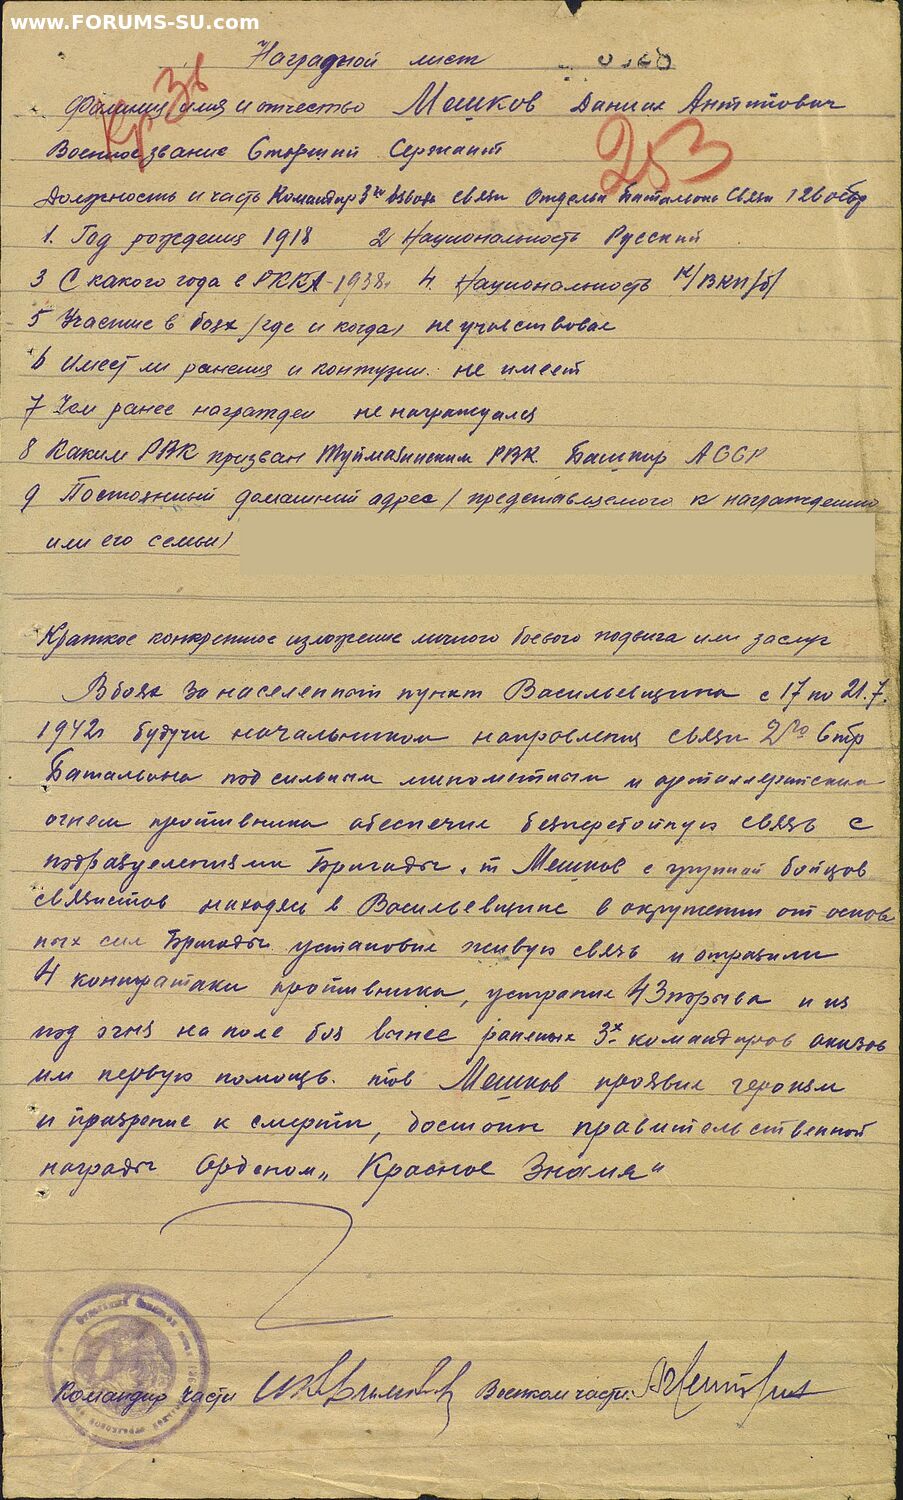 www.FORUMS-SU.com
Наградной лист
Кр Зв
Фамилия имя и отчество Мешков Даниил Антипович
253
Военное звание Старший Сержант
Должность и часть Командир 3го взвода связи Отдельн Батальона Связи 126 осбр
1. Год рождения 1918 2 Национальность Русский
3 С какого года в РККА - 1938г 4. Национальность к/ВКП/б/
5 Участие в боях /где и когда/ не участвовал
6 Имеет ли ранения и контузии. не имеет
7 Чем ранее награжден не награждался
8 Каким РВК призван Туймазинским РВК. Башкир АССР
9 Постоянный домашний адрес /представляемого к награждению
или его семьи/
Краткое конкретное изложение личного боевого подвига или заслуг
В боях за населенный пункт Васильевщина с 17 по 21.7.
1942г будучи начальником направления связи 2го Стр
Батальона под сильным минометным и артиллерийским
огнем противника обеспечил безперебойную связь с
подразделениями Бригады. т Мешков с группой бойцов
связистов находясь в Васильевщине в окружении от основ
ных сил Бригады установил живую связь и отразили
4 контратаки противника, устранил 43 порыва и из
под огня на поле боя вынес раненых 3х командиров оказав
им первую помощь. тов Мешков проявил героизм
и призрение к смерти, достоин правительственной
награды Орденом „Красное Знамя“
Командир части Военком части.